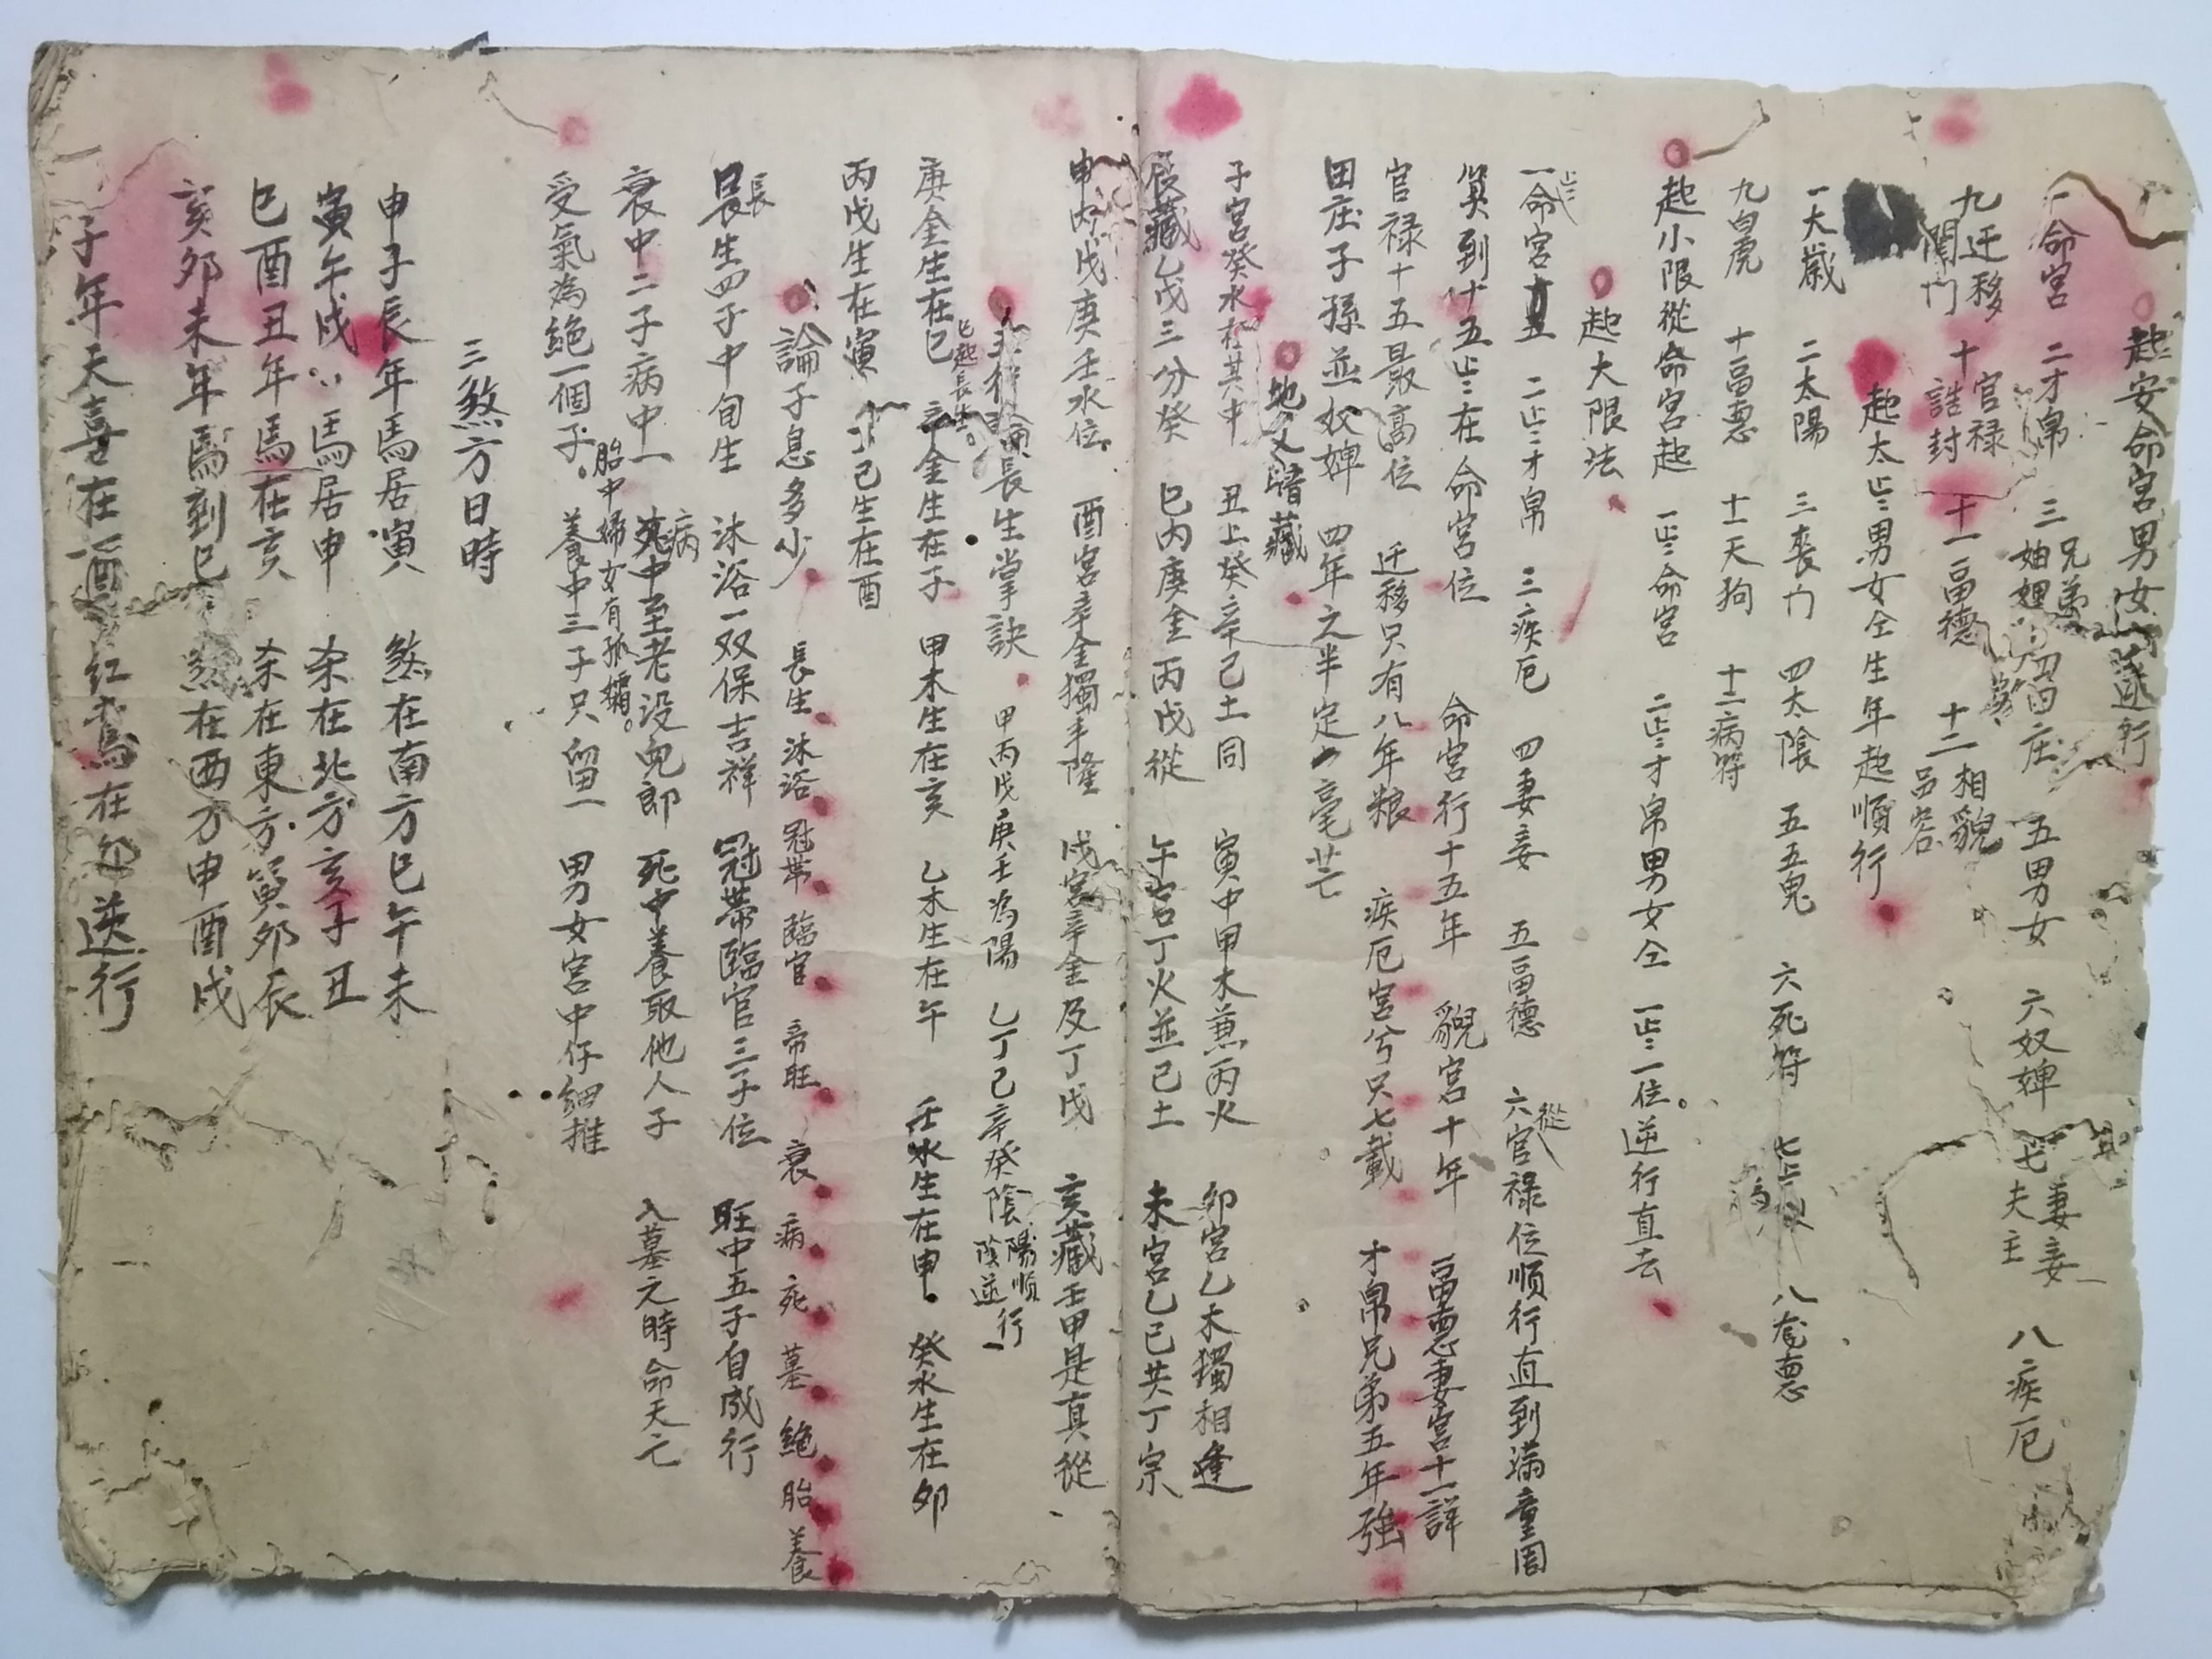 起安命宮男女逆行
一命宮 二才帛 三兄弟妯娌 四田庄 五男女 六奴婢 七妻妾夫主 八疾厄
九迁移 閨门 十官禄誥封 十一畐德 十二相貌 吕容
起太歲男女仝生年起順行
一大歲 二太陽 三丧门 四太陰 五五鬼 六死符 七 八龙惪
九白虎 十畐惪 十一天狗 十二病符
起小限從命宮起 一歲命宮 二歲才帛男女仝 一歲一位。逆行直去
起大限法
一歲命宮十五 二歲才帛 三疾厄 四妻妾 五畐德 六從官禄位順行直到满童固
筭到十五歲在命宮位 命宮行十五年 貌宮十年 畐惪妻宮十一詳
官禄十五最高位 迁移只有八年粮 疾厄宮兮只七載 才帛兄弟五年强
田庄子孫並奴婢 四年之半定毫芒
地支暗藏
子宮癸水在其中 丑上癸辛己土同 寅中甲木兼丙火 卯宮乙木獨相逢
辰藏乙戊三分癸 巳内庚金丙戊從 午宮丁火並己土 未宮乙己共丁宗
申内戊庚壬水位 酉宮辛金獨丰隆 戌宮辛金及丁戊 亥藏壬甲是真從
五行論長生掌訣 甲丙戊庚壬為陽 乙丁己辛癸陰 陽順陰逆行
庚金生在巳 辛金生在子 甲木生在亥 乙木生在午 壬水生在申 癸水生在卯
丙戊生在寅 丁己生在酉
論子息多少 長生 沐浴 冠带 臨官 帝旺 衰 病 死 墓 絶 胎 養
長生四子中旬生 沐浴一双保吉祥 冠帶臨官三子位 旺中五子自成行
衰中二子病中一 病中至老没兒郎 死中養取他人子 入墓之時命夭亡
受氣為絶一個子 胎中婦女有孤孀。 養中三子只留一 男女宮中仔細推
三煞方日時
申子辰年馬居寅 煞在南方巳午未
寅午戌〻馬居申 杀在北方亥子丑
巳酉丑年馬在亥 杀在東方寅卯辰
亥卯未年馬到巳 煞在西方申酉戌
子年天喜在酉 红鸞在卯逆行